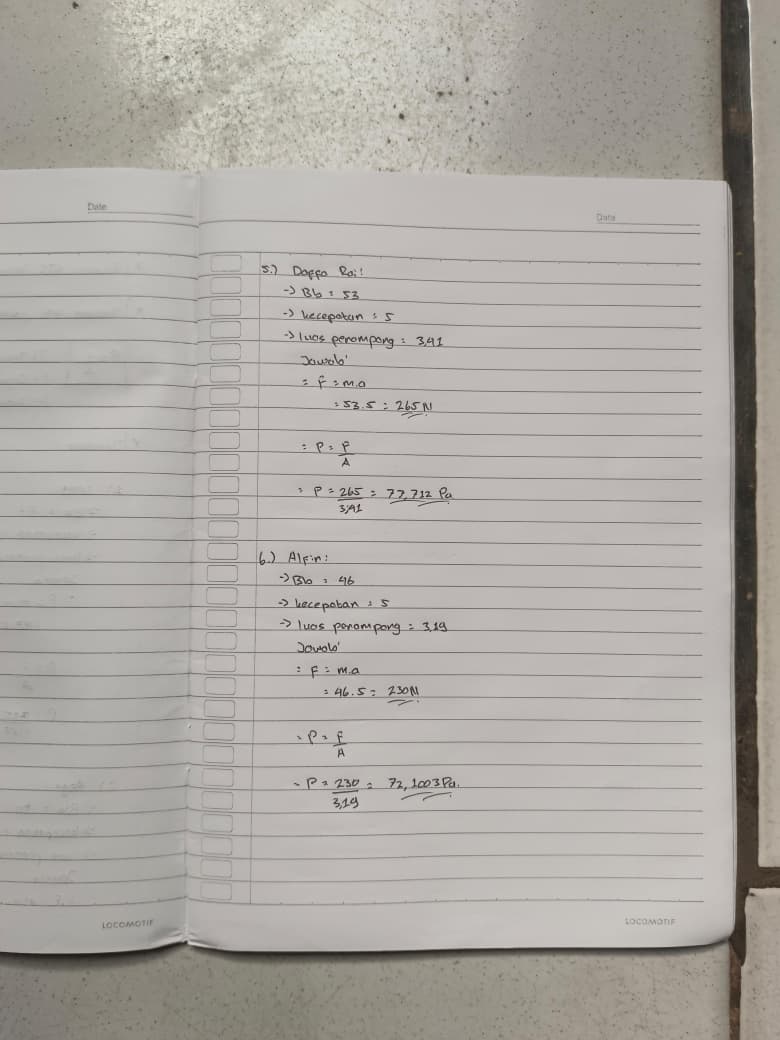 Date
Date
5.) Daffa Rai!
-> Bb = 53
-> kecepatan = 5
-> luas penampang = 3,41
Jawab'
= F = m.a
= 53.5 = 265 N
= P = F
A
= P = 265 = 77,712 Pa
3,41
6.) Alfin:
-> Bb = 46
-> kecepatan = 5
-> luas penampang = 3,19
Jawab'
= F = m.a
= 46.5 = 230N
= P = F
A
= P = 230 = 72,1003 Pa.
3,19
LOCOMOTIF
LOCOMOTIF